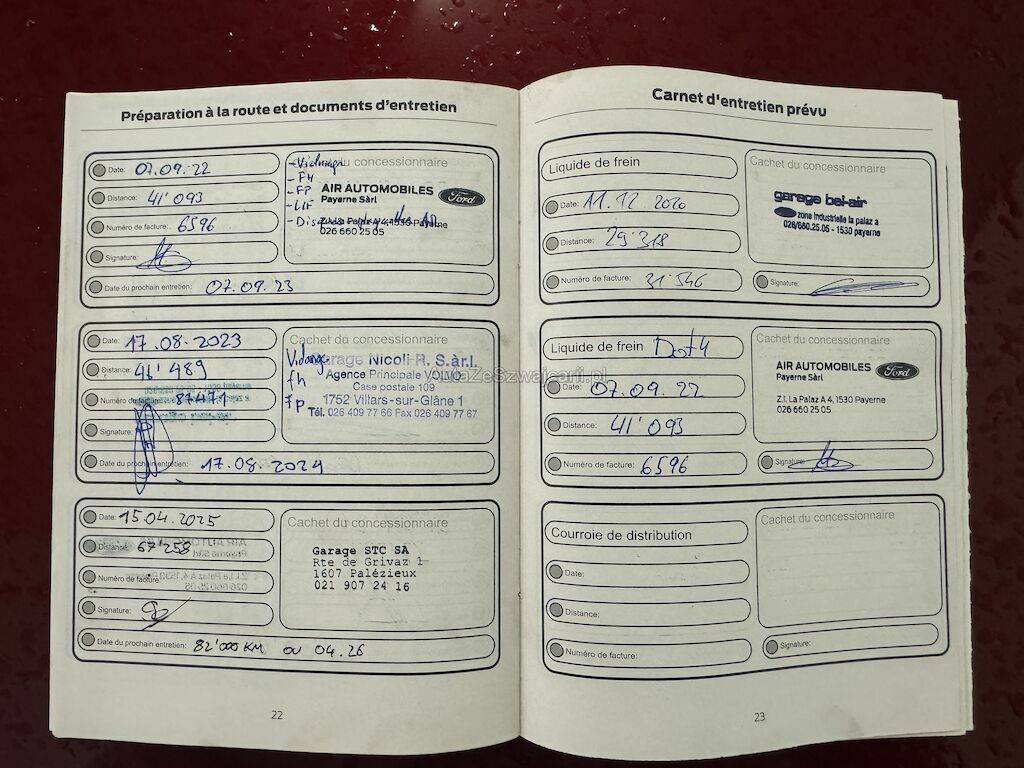 Préparation à la route et documents d'entretien
Date: 07.09.22
Distance: 41'093
Numéro de facture: 6596
Signature:
Date du prochain entretien: 07.09.23
du concessionnaire
- Vidange
- FH
- FP
AIR AUTOMOBILES
Payerne Sàrl
Ford
Z.I. La Palaz A 4, 1530 Payerne
026 660 25 05
Date: 17.08.2023
Distance: 46'489
Numéro de facture: 87471
Signature:
Date du prochain entretien: 17.08.2024
Cachet du concessionnaire
Vidange
fh
fp
Garage Nicoli R. S.àr.l.
Agence Principale VOLVO
Case postale 109
1752 Villars-sur-Glâne 1
Tél. 026 409 77 66 Fax 026 409 77 67
AutaZeSzwajcarii.pl
Date: 15.04.2025
Distance: 67'258
Numéro de facture:
Signature:
Date du prochain entretien: 82'000 KM OU 04.26
Cachet du concessionnaire
Garage STC SA
Rte de Grivaz 1
1607 Palézieux
021 907 24 16
22
Carnet d'entretien prévu
Liquide de frein
Date: 11.12.2020
Distance: 29'318
Numéro de facture: 31'546
Cachet du concessionnaire
garage bel-air
zone industrielle la palaz a
026/660.25.05 - 1530 payerne
Signature:
Liquide de frein Dot4
Date: 07.09.22
Distance: 41'093
Numéro de facture: 6596
Cachet du concessionnaire
AIR AUTOMOBILES
Payerne Sàrl
Ford
Z.I. La Palaz A 4, 1530 Payerne
026 660 25 05
Signature:
Courroie de distribution
Date:
Distance:
Numéro de facture:
Cachet du concessionnaire
Signature:
23